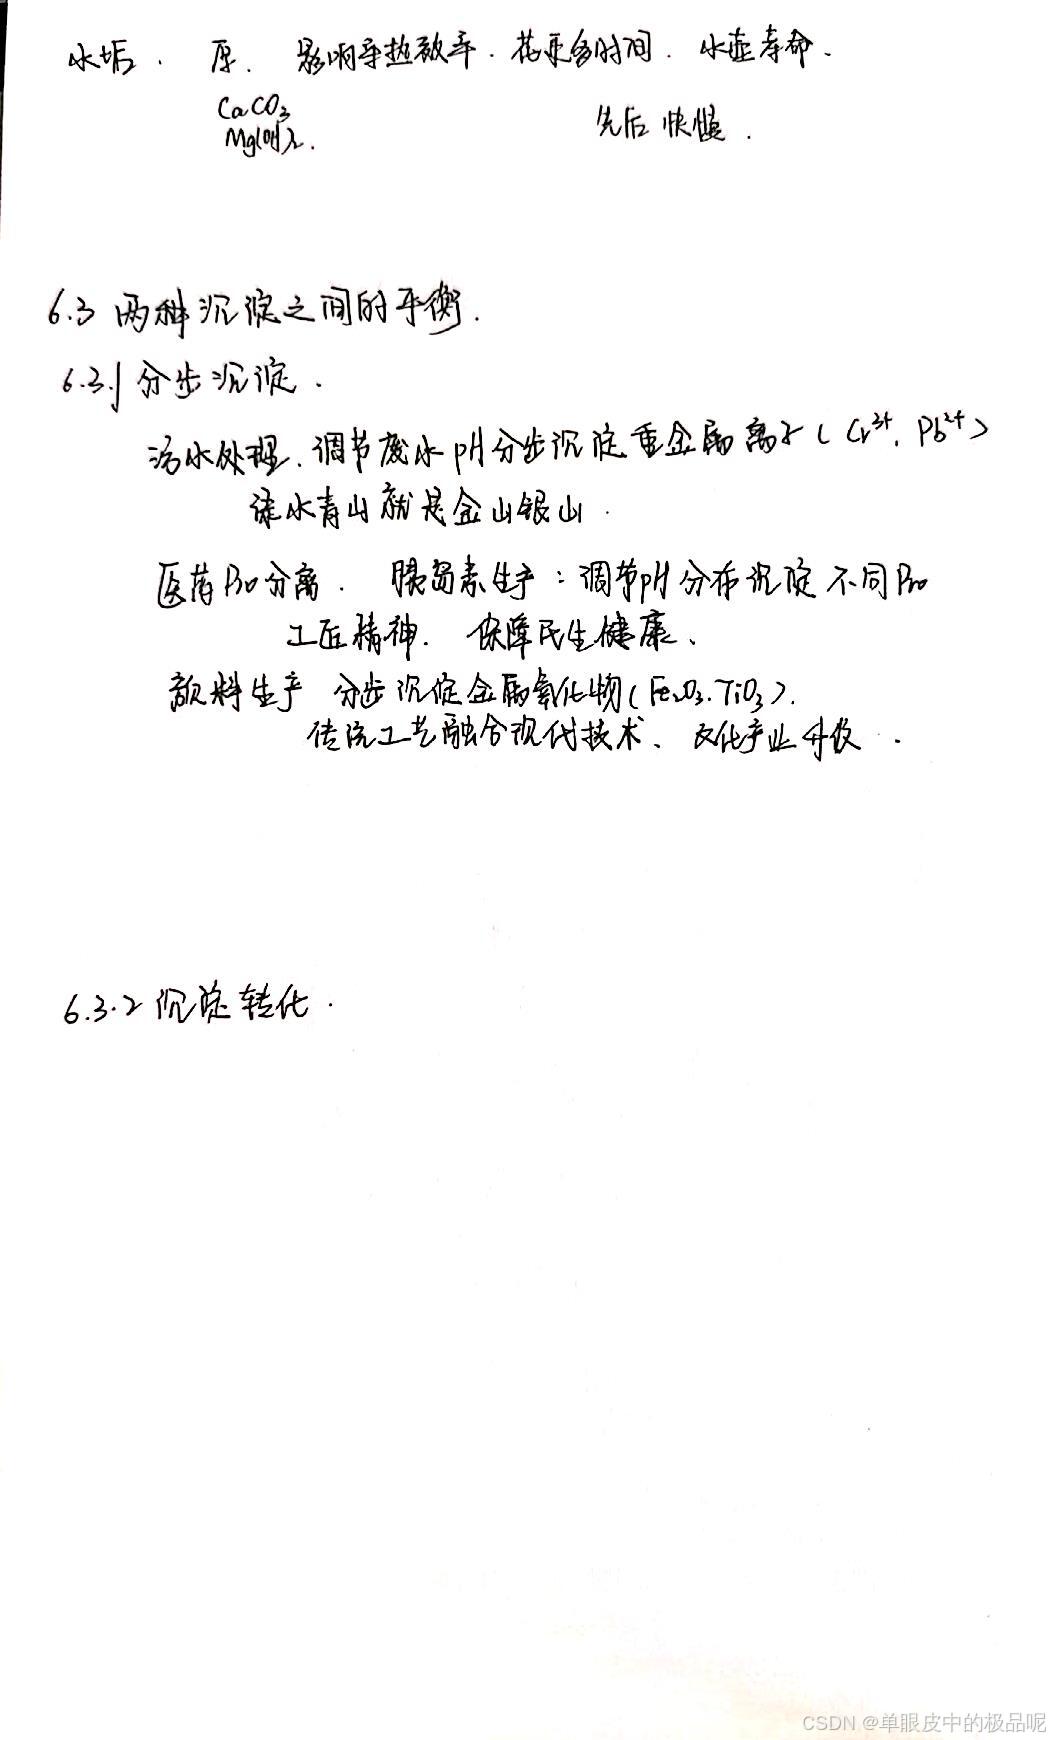 水垢. 厚. 影响导热效率. 花更多时间. 水壶寿命.
CaCO3
Mg(OH)2.
先后 快慢.
6.3 两种沉淀之间的平衡.
6.3.1 分步沉淀.
污水处理. 调节废水pH分步沉淀重金属离子(Cr3+. Pb2+)
绿水青山就是金山银山.
医药Pro分离. 胰岛素生产:调节pH分布沉淀不同Pro
工匠精神. 保障民生健康、
颜料生产 分步沉淀金属氧化物(Fe2O3.TiO3).
传统工艺融合现代技术、文化产业升级.
6.3.2 沉淀转化.
CSDN @单眼皮中的极品呢